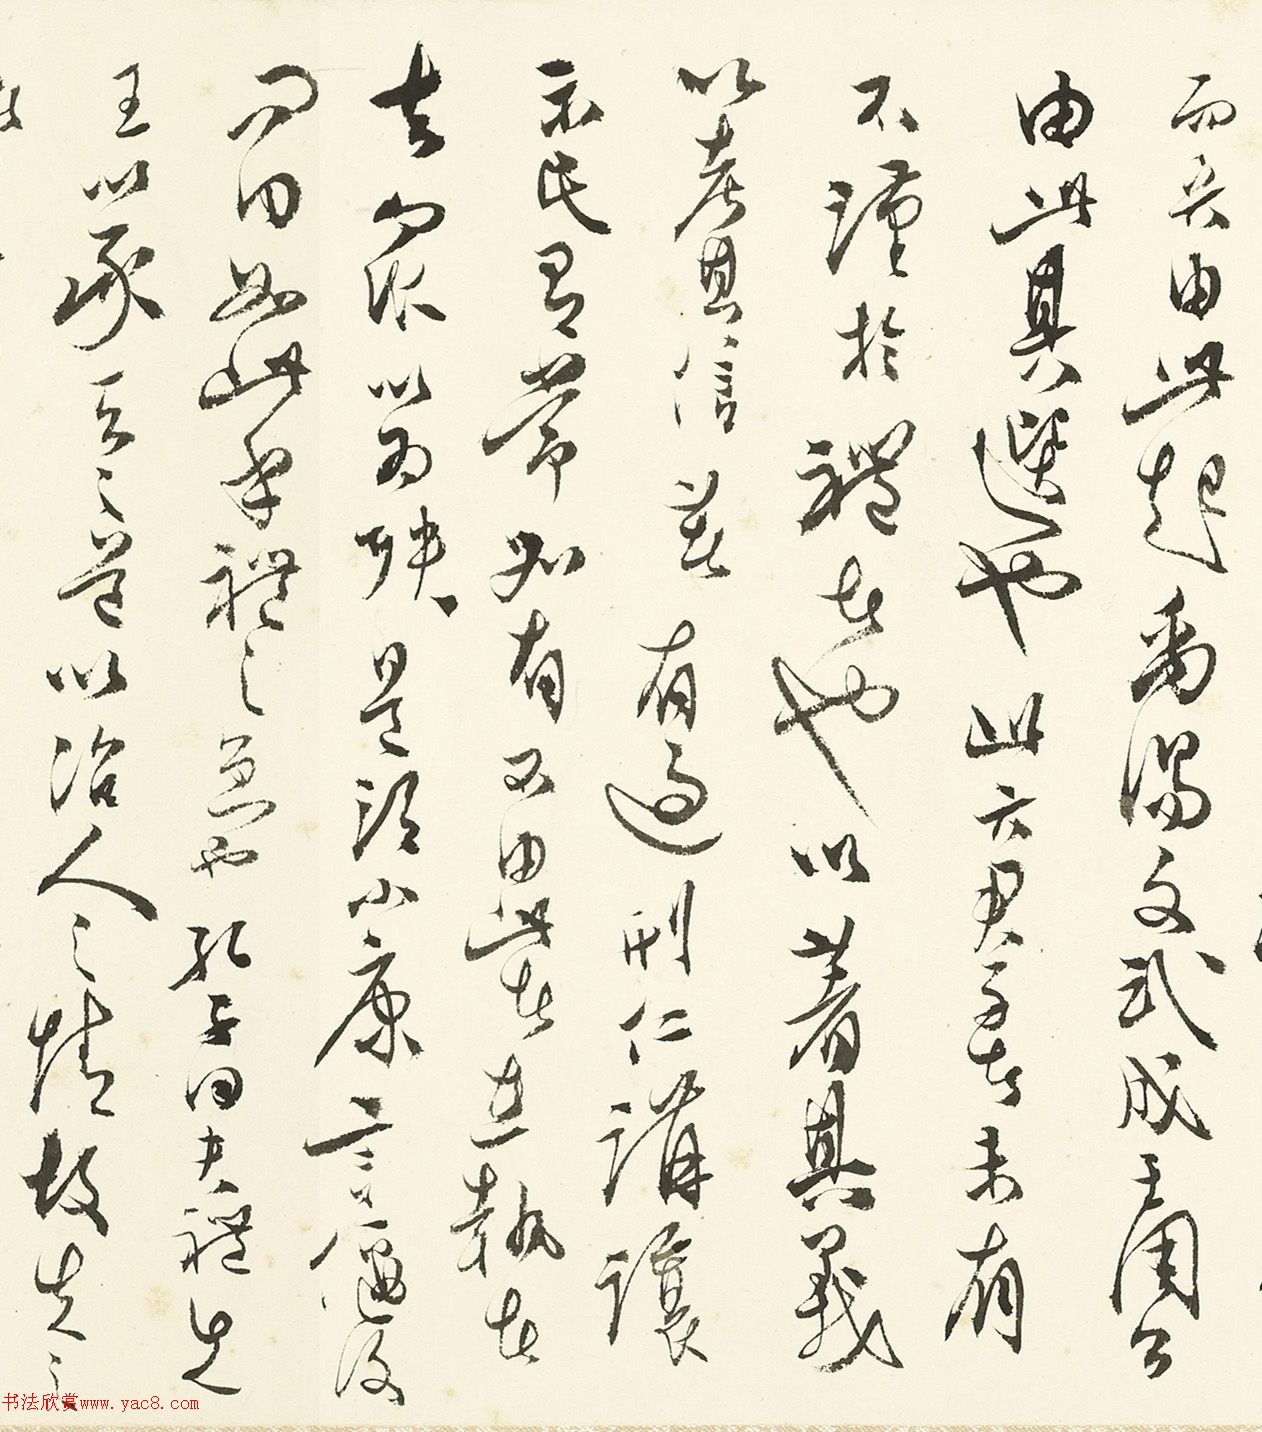 而兵由此起禹湯文武成王周公
由此其選也此六君子者未有
不謹於禮者也以著其義
以考其信著有過刑仁講讓
示民有常如有不由此者在執者
去眾以為殃是謂小康言偃復
問曰如此乎禮之急也孔子曰夫禮先
王以承天之道以治人之情故失之
书法欣赏www.yac8.com